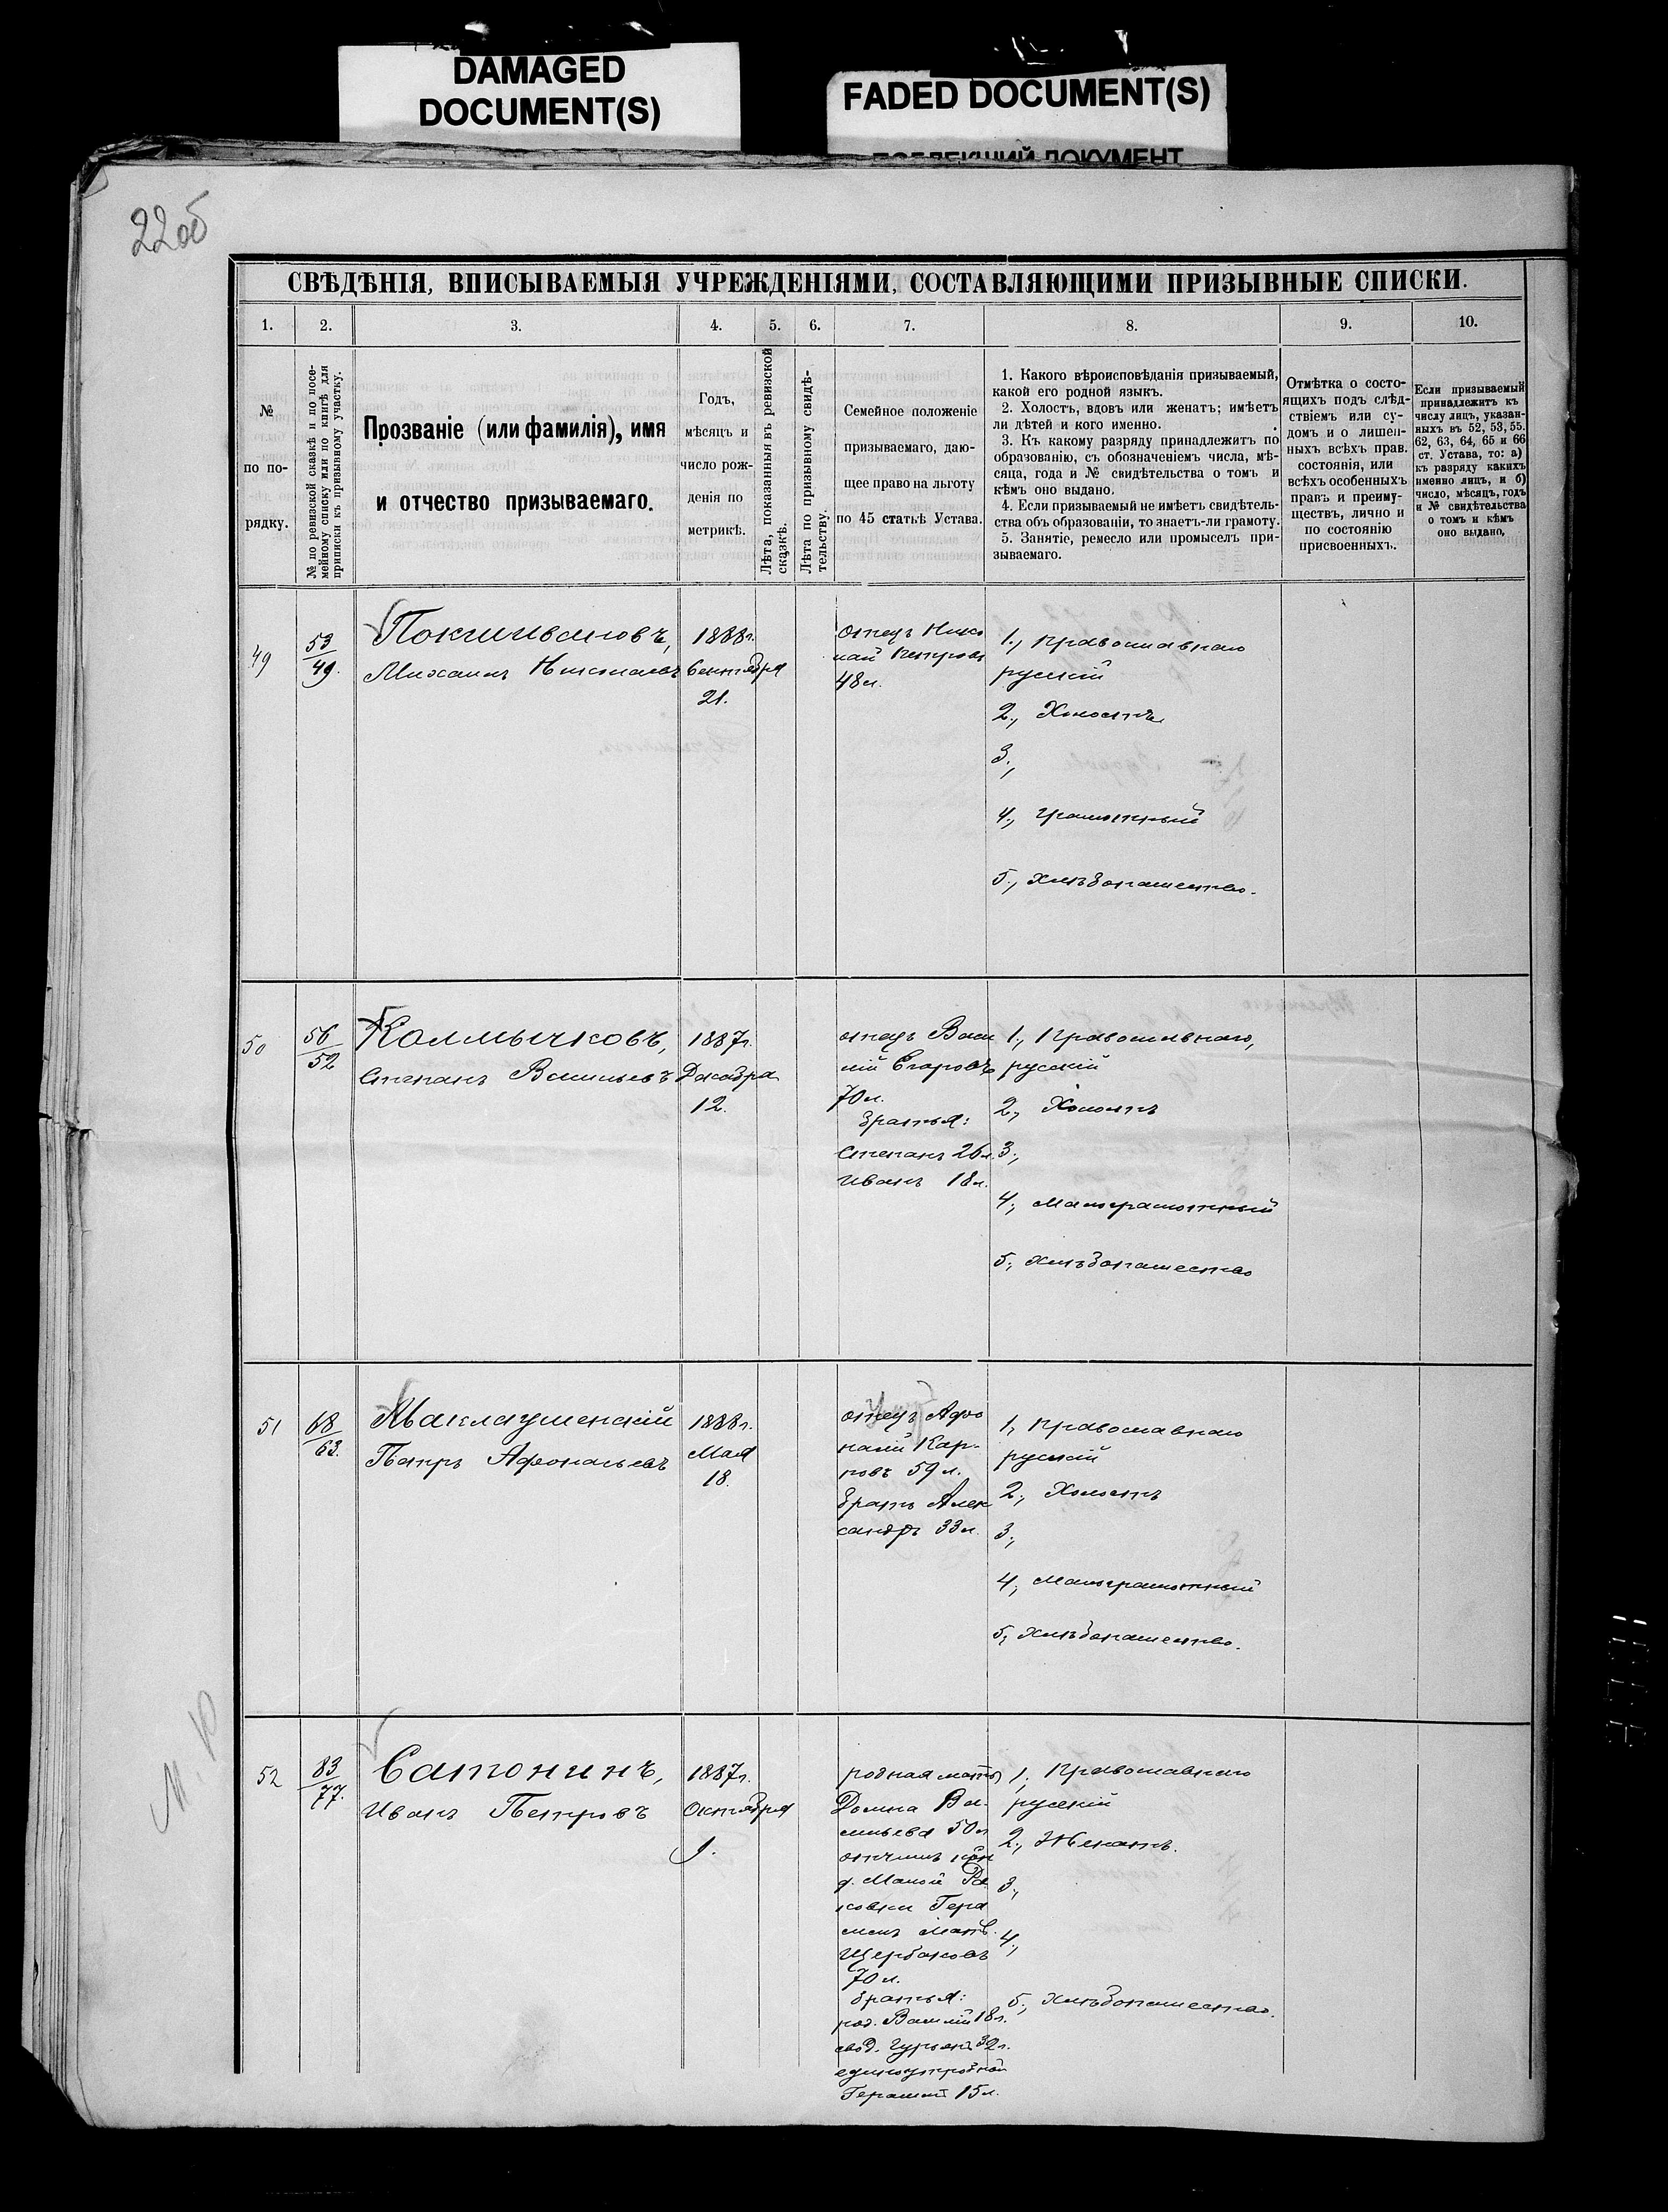 DAMAGED
DOCUMENT(S)
FADED DOCUMENT(S)
ДОКУМЕНТ
22об
СВѢДѢНІЯ, ВПИСЫВАЕМЫЯ УЧРЕЖДЕНІЯМИ, СОСТАВЛЯЮЩИМИ ПРИЗЫВНЫЕ СПИСКИ.
1. 2. 3. 4. 5. 6. 7. 8. 9. 10.
№
по по-
рядку.
№ по ревизской сказкѣ и по посе-
мейному списку или по книгѣ для
приписки къ призывному участку.
Прозваніе (или фамилія), имя
и отчество призываемаго.
Годъ,
мѣсяцъ и
число рож-
денія по
метрикѣ.
Лѣта, показанныя въ ревизской
сказкѣ.
Лѣта по призывному свидѣ-
тельству.
Семейное положеніе
призываемаго, даю-
щее право на льготу
по 45 статьѣ Устава.
1. Какого вѣроисповѣданія призываемый,
какой его родной языкъ.
2. Холостъ, вдовъ или женатъ; имѣетъ
ли дѣтей и кого именно.
3. Къ какому разряду принадлежитъ по
образованію, съ обозначеніемъ числа, мѣ-
сяца, года и № свидѣтельства о томъ и
кѣмъ оно выдано.
4. Если призываемый не имѣетъ свидѣтель-
ства объ образованіи, то знаетъ-ли грамоту.
5. Занятіе, ремесло или промыселъ при-
зываемаго.
Отмѣтка о состо-
ящихъ подъ слѣд-
ствіемъ или су-
домъ и о лишен-
ныхъ всѣхъ прав.
состоянія, или
всѣхъ особенныхъ
правъ и преиму-
ществъ, лично и
по состоянію
присвоенныхъ.
Если призываемый
принадлежитъ къ
числу лицъ, указан-
ныхъ въ 52, 53, 55.
62, 63, 64, 65 и 66
ст. Устава, то: а)
къ разряду какихъ
именно лицъ, и б)
число, мѣсяцъ, годъ
и № свидѣтельства
о томъ и кѣмъ
оно выдано,
49
53
49.
Михаилъ Николаевъ
1888г.
Сентября
21.
отецъ Нико
лай Петровъ
48л.
1., Православнаго
русскій
2., Холостъ
3.,
4., грамотный
5., хлѣбопашество.
50
56
52
Калмычковъ,
Степанъ Васильевъ
1887г.
Декабря
12.
отецъ Васи
лій Егоровъ
70л.
братья:
Степанъ 26л.
Иванъ 18л.
1., Православнаго,
русскій
2., Холостъ
3.,
4., малограмотный
5., хлѣбопашество
51
68
63.
Маклаушенскій
Петръ Афонасьевъ
1888г.
Мая
18.
отецъ Афо
насій Кар-
повъ 59л.
братъ Алек
сандръ 33л.
1., Православнаго
русскій
2., Холостъ
3.,
4., малограмотный
5., хлѣбопашество.
52
83
77.
Сапонинъ,
Иванъ Петровъ
1887г.
Октября
1.
родная мать
Домна Ва-
сильева 50л
отчимъ
д. Малой Ра
ковки Гера
симъ Матв.
Щербаковъ
70л.
братья:
род. Василій 18л.
свод. Гурьянъ 32л.
единоутробной
Герасимъ 15л.
1., Православнаго
русскій
2., Женатъ.
3.,
4.,
5., хлѣбопашество.